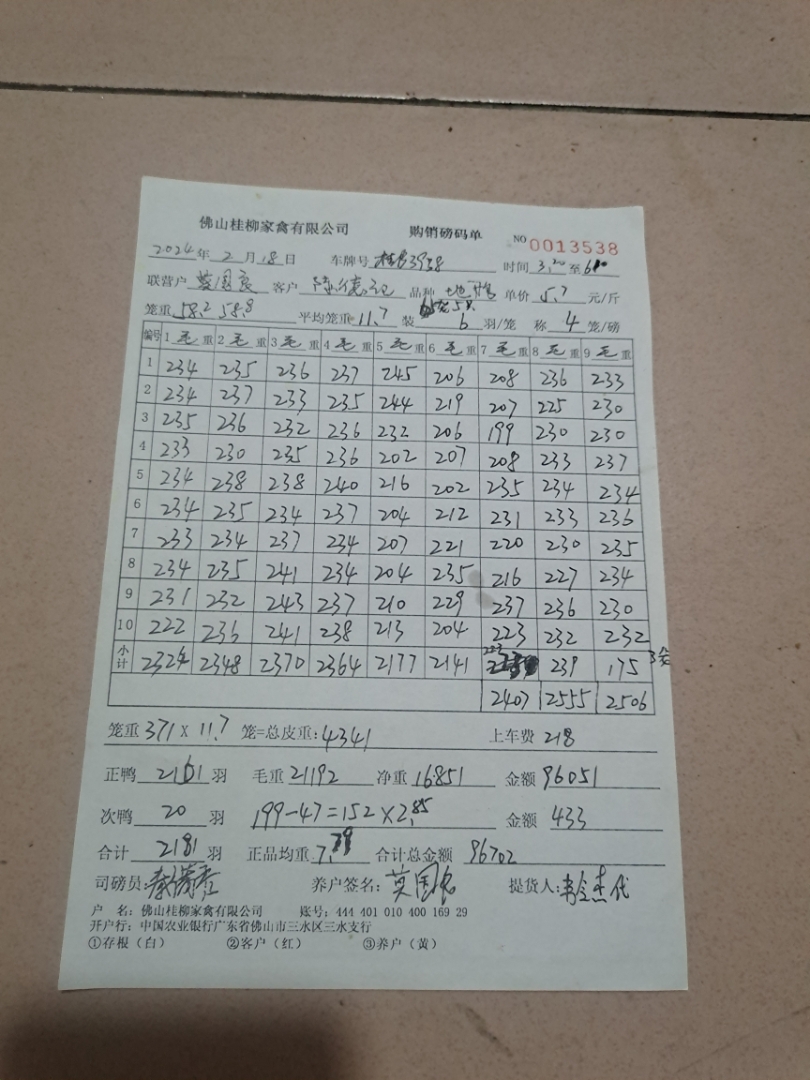 佛山桂柳家禽有限公司 购销磅码单 NO 0013538
2024年2月18日 车牌号 3958 时间 3.20至6
联营户 客户 品种 单价 5.7 元/斤
笼重 58.2 58.8 平均笼重 11.7 装 6 羽/笼 称 4 笼/磅
编号 1毛重 2毛重 3毛重 4毛重 5毛重 6毛重 7毛重 8毛重 9毛重
1 234 235 236 237 245 206 208 236 233
2 234 237 233 235 244 219 207 225 230
3 235 236 232 236 232 206 199 230 230
4 233 230 235 236 202 207 208 233 237
5 234 238 238 240 216 202 235 234 234
6 234 235 234 237 204 212 231 233 236
7 233 234 237 234 207 221 220 230 235
8 234 235 241 234 204 235 216 227 234
9 231 232 243 237 210 229 237 236 230
10 222 236 241 238 213 204 223 232 232
小计 2324 2348 2370 2364 2177 2141 223 239 175
2407 2555 2506
笼重 371 X 11.7 笼=总皮重: 4341 上车费 218
正鸭 2161 羽 毛重 21192 净重 16851 金额 96051
次鸭 20 羽 199-47=152×2.85 金额 433
合计 2181 羽 正品均重 7.79 合计总金额 96702
司磅员: 养户签名: 莫国 提货人: 代
户 名: 佛山桂柳家禽有限公司 账号: 444 401 010 400 169 29
开户行: 中国农业银行广东省佛山市三水区三水支行
①存根(白) ②客户(红) ③养户(黄)